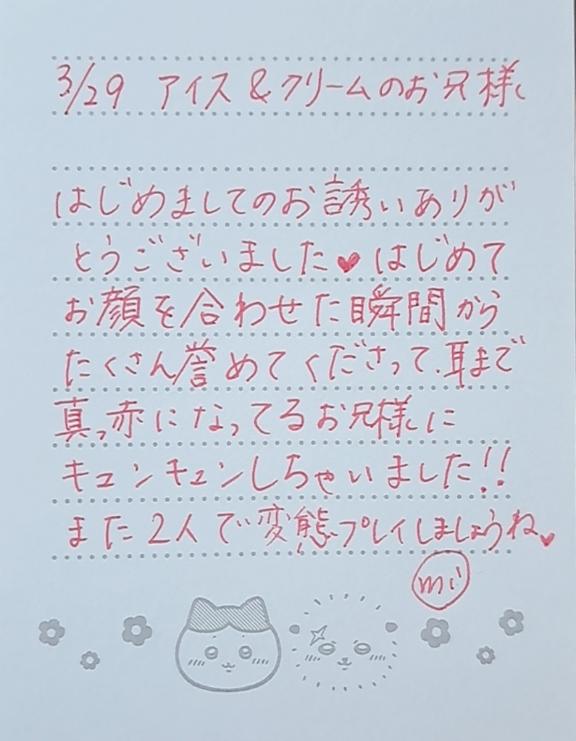 3/29 アイス&クリームのお兄様
はじめましてのお誘いありが
とうございました♥はじめて
お顔を合わせた瞬間から
たくさん誉めてくださって、耳まで
真っ赤になってるお兄様に
キュンキュンしちゃいました!!
また2人で変態プレイしましょうね♥
mi